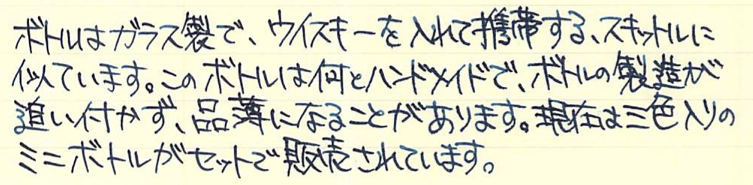 ボトルはガラス製で、ウイスキーを入れて携帯する、スキットルに
似ています。このボトルは何とハンドメイドで、ボトルの製造が
追い付かず、品薄になることがあります。現在は三色入りの
ミニボトルがセットで販売されています。